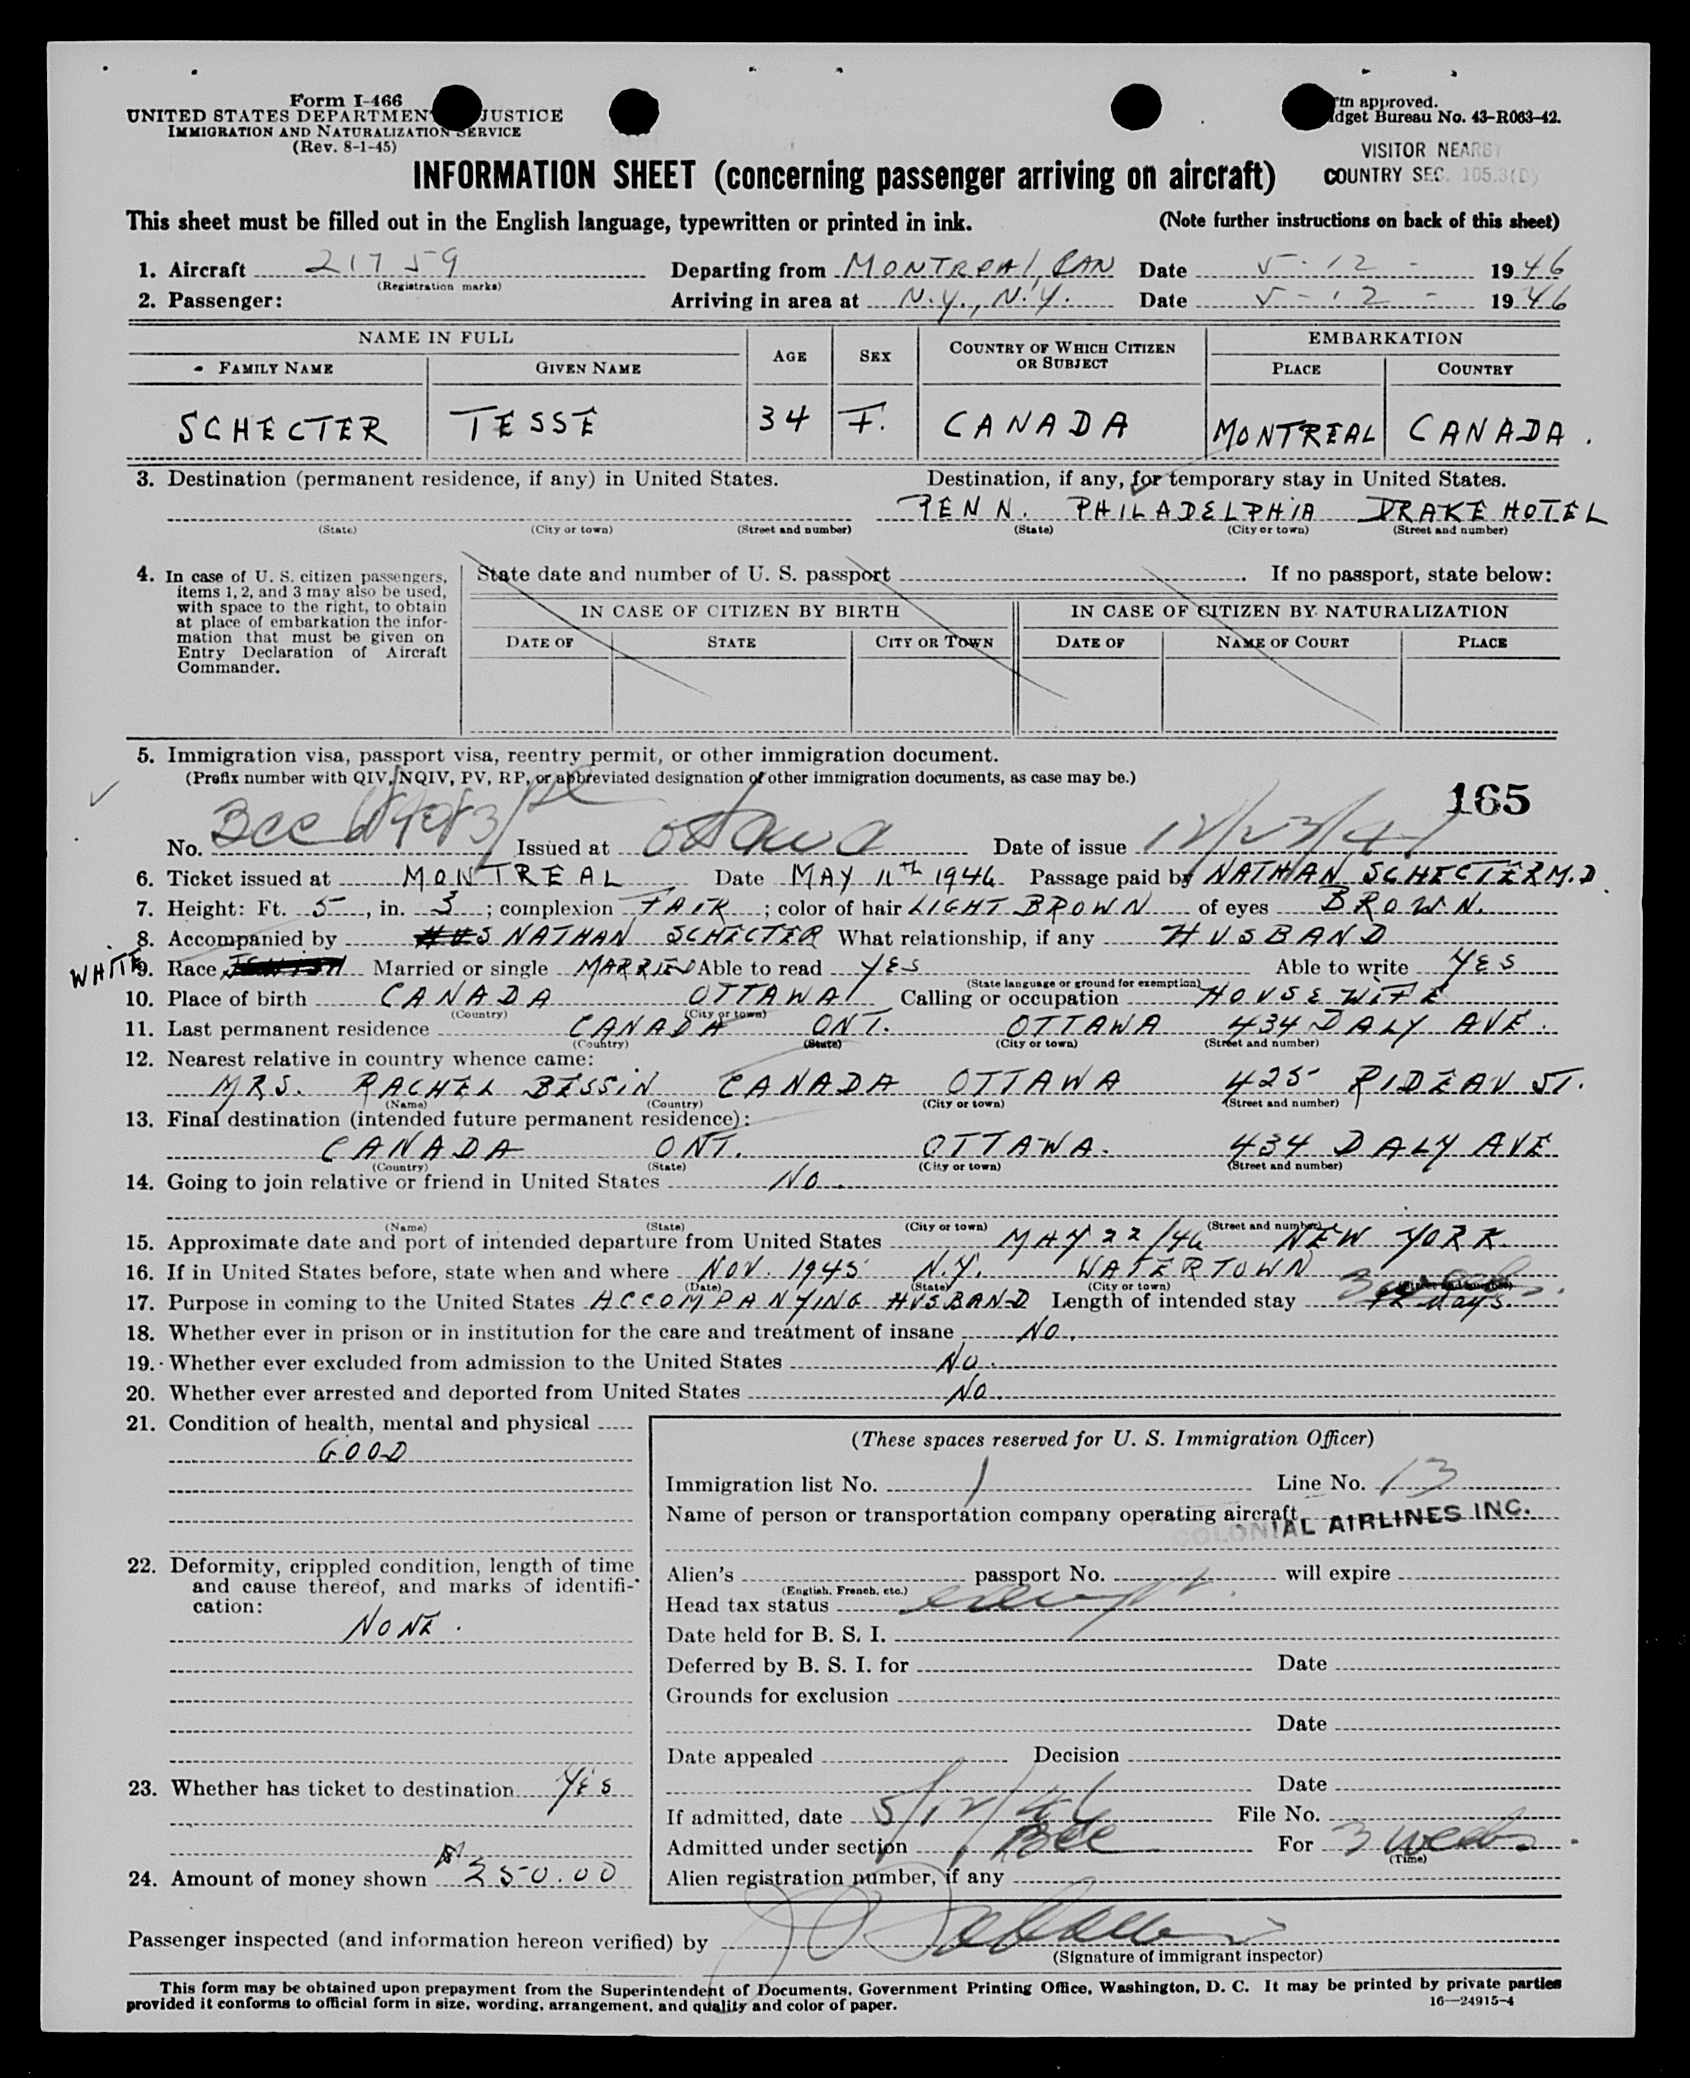 Form I-466
UNITED STATES DEPARTMENT JUSTICE
IMMIGRATION AND NATURALIZATION SERVICE
(Rev. 8-1-45)
approved.
Bureau No. 43-R063-42.
VISITOR NEARBY
COUNTRY SEC. 105.3(D)
INFORMATION SHEET (concerning passenger arriving on aircraft)
This sheet must be filled out in the English language, typewritten or printed in ink. (Note further instructions on back of this sheet)
1. Aircraft 21759 Departing from MONTREAL, CAN Date 5-12- 1946
(Registration marks)
2. Passenger: Arriving in area at N.Y., N.Y. Date 5-12- 1946
NAME IN FULL AGE SEX COUNTRY OF WHICH CITIZEN OR SUBJECT EMBARKATION
FAMILY NAME GIVEN NAME PLACE COUNTRY
SCHECTER TESSE 34 F. CANADA MONTREAL CANADA.
3. Destination (permanent residence, if any) in United States. Destination, if any, for temporary stay in United States.
PENN. PHILADELPHIA DRAKE HOTEL
(State) (City or town) (Street and number) (State) (City or town) (Street and number)
4. In case of U. S. citizen passengers, items 1, 2, and 3 may also be used, with space to the right, to obtain at place of embarkation the information that must be given on Entry Declaration of Aircraft Commander.
State date and number of U. S. passport If no passport, state below:
IN CASE OF CITIZEN BY BIRTH IN CASE OF CITIZEN BY NATURALIZATION
DATE OF STATE CITY OR TOWN DATE OF NAME OF COURT PLACE
5. Immigration visa, passport visa, reentry permit, or other immigration document.
(Prefix number with QIV, NQIV, PV, RP, or abbreviated designation of other immigration documents, as case may be.)
165
No. BCC Issued at Ottawa Date of issue 12/23/41
6. Ticket issued at MONTREAL Date MAY 11th 1946 Passage paid by NATHAN SCHECTER M.D.
7. Height: Ft. 5, in. 3; complexion FAIR; color of hair LIGHT BROWN of eyes BROWN.
8. Accompanied by NATHAN SCHECTER What relationship, if any HUSBAND
WHITE
9. Race Married or single MARRIED Able to read YES Able to write YES
(State language or ground for exemption)
10. Place of birth CANADA OTTAWA Calling or occupation HOUSEWIFE
(Country) (City or town)
11. Last permanent residence CANADA ONT. OTTAWA 434 DALY AVE.
(Country) (State) (City or town) (Street and number)
12. Nearest relative in country whence came:
MRS. RACHEL BESSIN CANADA OTTAWA 425 RIDEAU ST.
(Name) (Country) (City or town) (Street and number)
13. Final destination (intended future permanent residence):
CANADA ONT. OTTAWA. 434 DALY AVE
(Country) (State) (City or town) (Street and number)
14. Going to join relative or friend in United States NO.
(Name) (State) (City or town) (Street and number)
15. Approximate date and port of intended departure from United States MAY 22/46 NEW YORK.
16. If in United States before, state when and where NOV. 1945 N.Y. WATERTOWN
(Date) (State) (City or town) (Street and number)
17. Purpose in coming to the United States ACCOMPANYING HUSBAND Length of intended stay 12 days 3 weeks.
18. Whether ever in prison or in institution for the care and treatment of insane NO.
19. Whether ever excluded from admission to the United States NO.
20. Whether ever arrested and deported from United States NO.
21. Condition of health, mental and physical
GOOD
22. Deformity, crippled condition, length of time and cause thereof, and marks of identification:
NONE.
23. Whether has ticket to destination YES
24. Amount of money shown $250.00
(These spaces reserved for U. S. Immigration Officer)
Immigration list No. 1 Line No. 13
Name of person or transportation company operating aircraft
COLONIAL AIRLINES INC.
Alien's passport No. will expire
(English, French, etc.)
Head tax status exempt.
Date held for B. S. I.
Deferred by B. S. I. for Date
Grounds for exclusion
Date
Date appealed Decision
Date
If admitted, date 5/12/46 File No.
Admitted under section BCC For 3 weeks.
(Time)
Alien registration number, if any
Passenger inspected (and information hereon verified) by
(Signature of immigrant inspector)
This form may be obtained upon prepayment from the Superintendent of Documents, Government Printing Office, Washington, D. C. It may be printed by private parties
provided it conforms to official form in size, wording, arrangement, and quality and color of paper.
16—24915-4